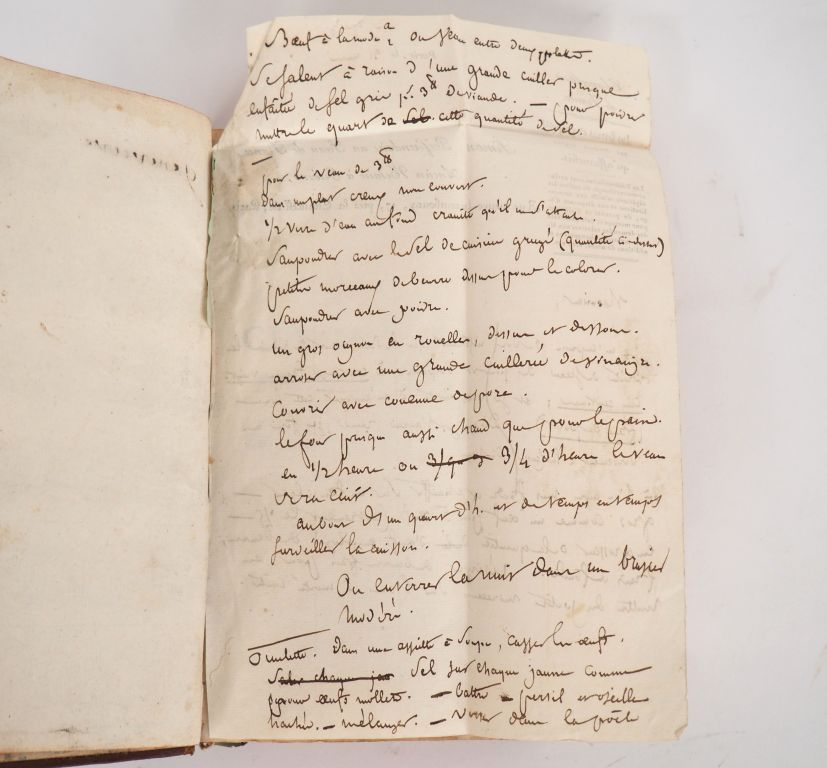 Bœuf à la mode ou veau entre deux plats.
Se salent à raison d'une grande cuiller presque
enfaîtée de sel gris pr. 3 ℔ de viande. — pour poivre
mettre le quart de sel cette quantité de sel.
—
pour le veau de 3 ℔
dans un plat creux non couvert.
1/2 verre d'eau au fond crainte qu'il ne s'attache.
Saupoudrer avec le sel de cuisine grugé (quantité ci-dessus)
petits morceaux de beurre dessus pour le colorer.
Saupoudrer avec poivre.
un gros oignon en rouelles, dessus et dessous.
arroser avec une grande cuillerée de vinaigre.
Couvrir avec couenne de porc.
le four presque aussi chaud que pour le pain.
en 1/2 heure ou 3/4 d'heure le veau
sera cuit.
au bout d'un quart d'h. et de temps en temps
surveiller la cuisson.
Ou enterrer la nuit dans un brasier
modéré.
Omelette. Dans une assiette à soupe, casser les œufs.
Sel sur chaque jaune comme
pour œufs mollets. — battre — persil et oseille
hachés. — mélanger. — verser dans la poêle